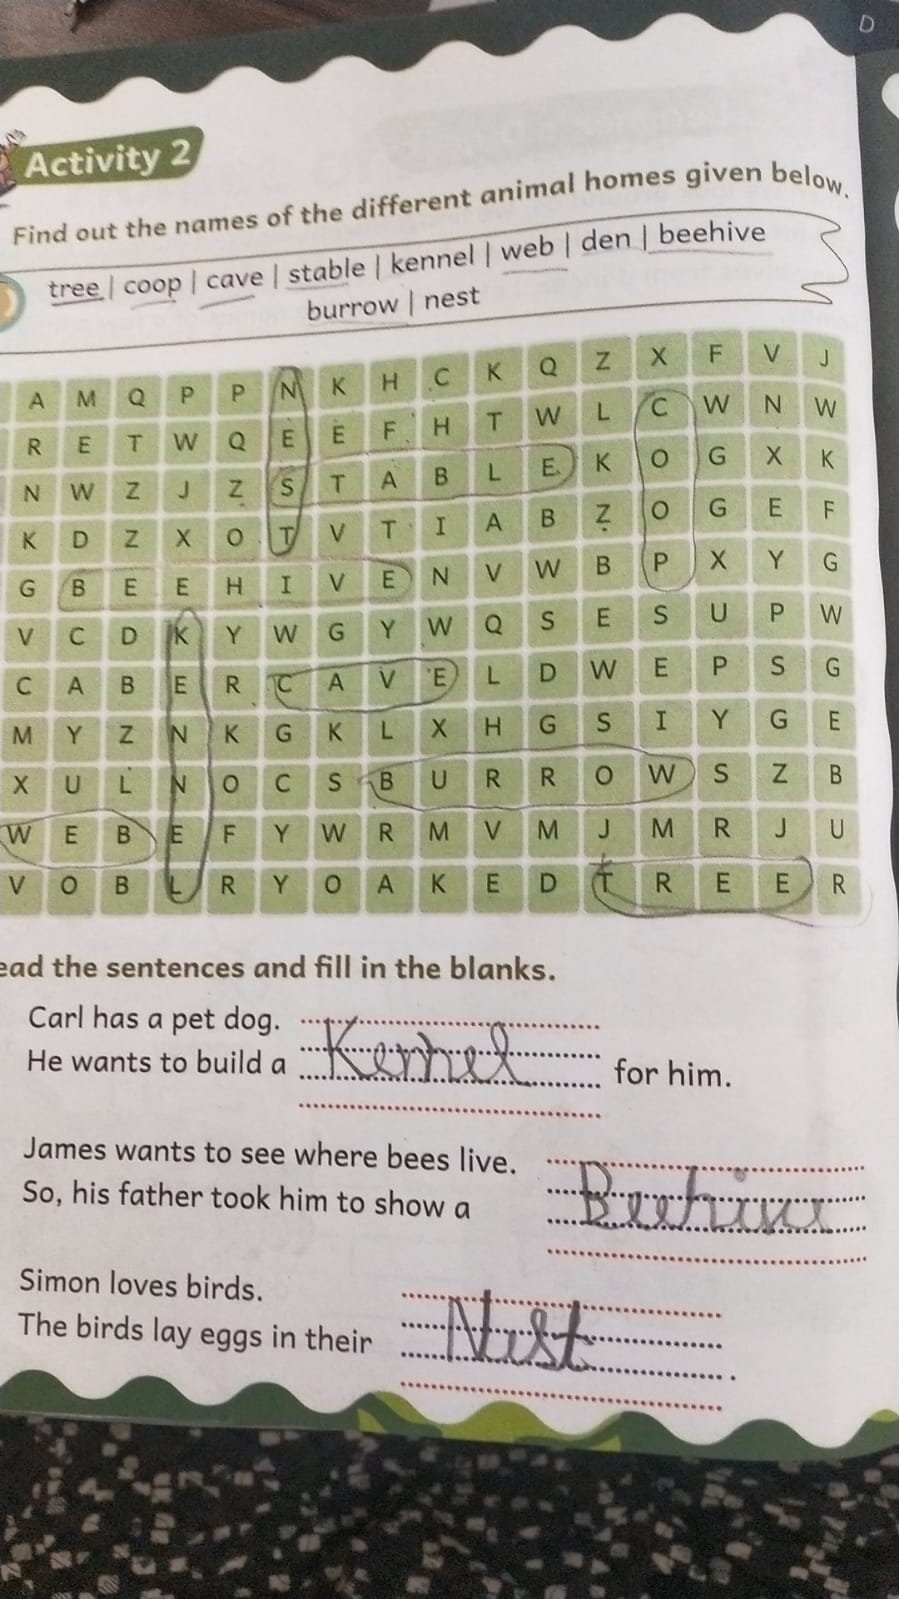 D
Activity 2
Find out the names of the different animal homes given below.
tree | coop | cave | stable | kennel | web | den | beehive
burrow | nest
A M Q P P N K H C K Q Z X F V J
R E T W Q E E F H T W L C W N W
N W Z J Z S T A B L E K O G X K
K D Z X O T V T I A B Z O G E F
G B E E H I V E N V W B P X Y G
V C D K Y W G Y W Q S E S U P W
C A B E R C A V E L D W E P S G
M Y Z N K G K L X H G S I Y G E
X U L N O C S B U R R O W S Z B
W E B E F Y W R M V M J M R J U
V O B L R Y O A K E D T R E E R
ead the sentences and fill in the blanks.
Carl has a pet dog.
He wants to build a Kennel for him.
James wants to see where bees live.
So, his father took him to show a Beehive
Simon loves birds.
The birds lay eggs in their Nest .